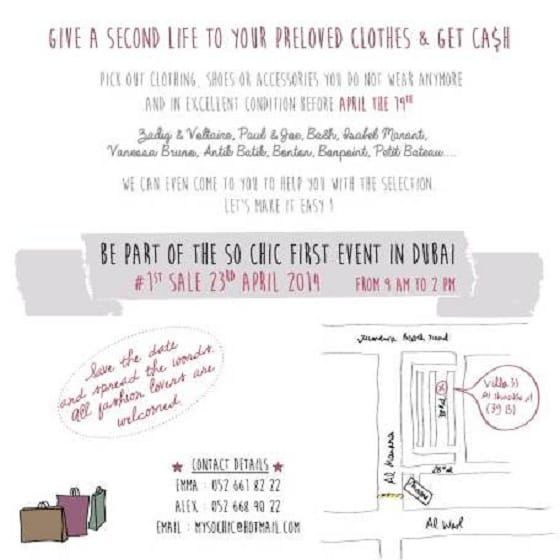 GIVE A SECOND LIFE TO YOUR PRELOVED CLOTHES & GET CA$H
PICK OUT CLOTHING, SHOES OR ACCESSORIES YOU DO NOT WEAR ANYMORE
AND IN EXCELLENT CONDITION BEFORE APRIL THE 19TH
Zadig & Voltaire, Paul & Joe, Ba&h, Isabel Marant,
Vanessa Bruno, Antik Batik, Bonton, Bonpoint, Petit Bateau....
WE CAN EVEN COME TO YOU TO HELP YOU WITH THE SELECTION.
LET'S MAKE IT EASY !
BE PART OF THE SO CHIC FIRST EVENT IN DUBAI
#1ST SALE 23RD APRIL 2014 FROM 9 AM TO 2 PM
Save the date
and spread the words.
All fashion lovers are
welcomed
CONTACT DETAILS
EMMA : 052 661 82 22
ALEX : 052 668 90 22
EMAIL : MYSOCHIC@HOTMAIL.COM
Jumeira Beach road
Villa 33
(39 B)
Al Manara
Al Wasl